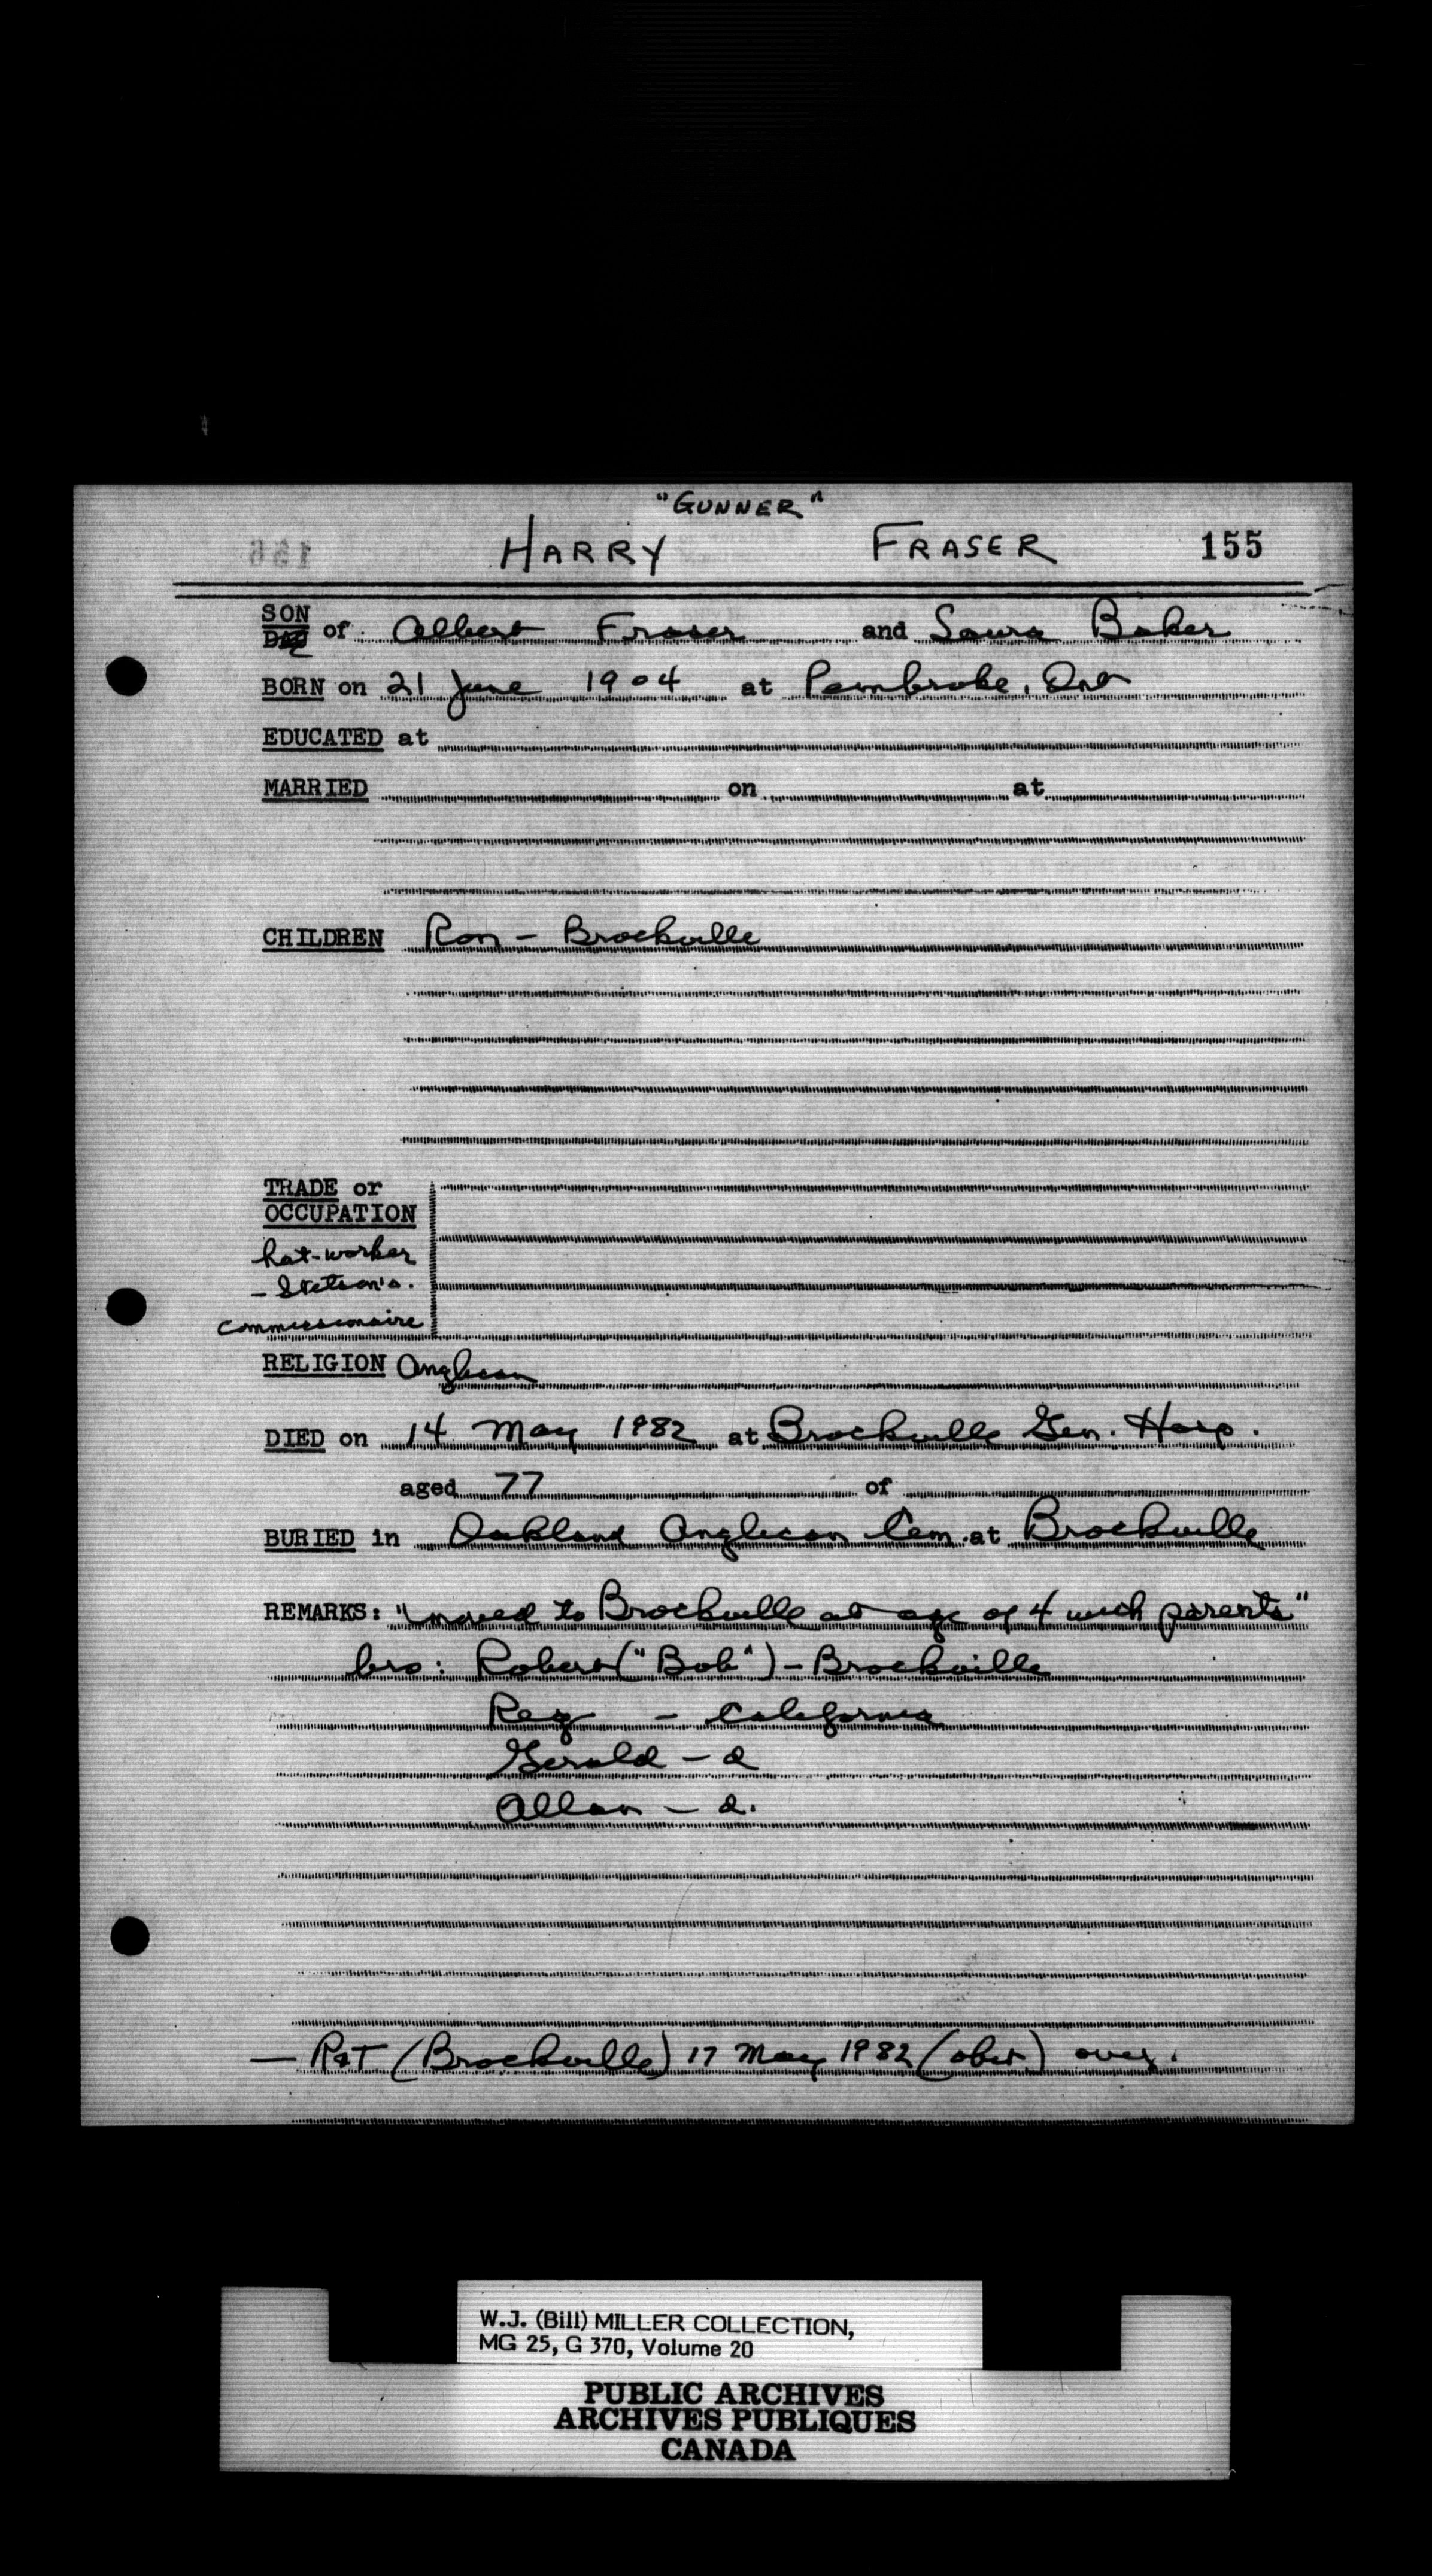 "GUNNER"
HARRY FRASER 155
SON
of Albert Fraser and Laura Baker
BORN on 21 June 1904 at Pembroke, Ont
EDUCATED at
MARRIED on at
CHILDREN Ron - Brockville
TRADE or
OCCUPATION
hat-worker
- Stetson's.
commissionaire
RELIGION Anglican
DIED on 14 May 1982 at Brockville Gen. Hosp.
aged 77 of
BURIED in Oakland Anglican Cem. at Brockville
REMARKS: "moved to Brockville at age of 4 with parents"
bro: Robert ("Bob") - Brockville
Reg - California
Gerald - d
Allan - d.
- R&T (Brockville) 17 May 1982 (obit) over.
W.J. (Bill) MILLER COLLECTION,
MG 25, G 370, Volume 20
PUBLIC ARCHIVES
ARCHIVES PUBLIQUES
CANADA